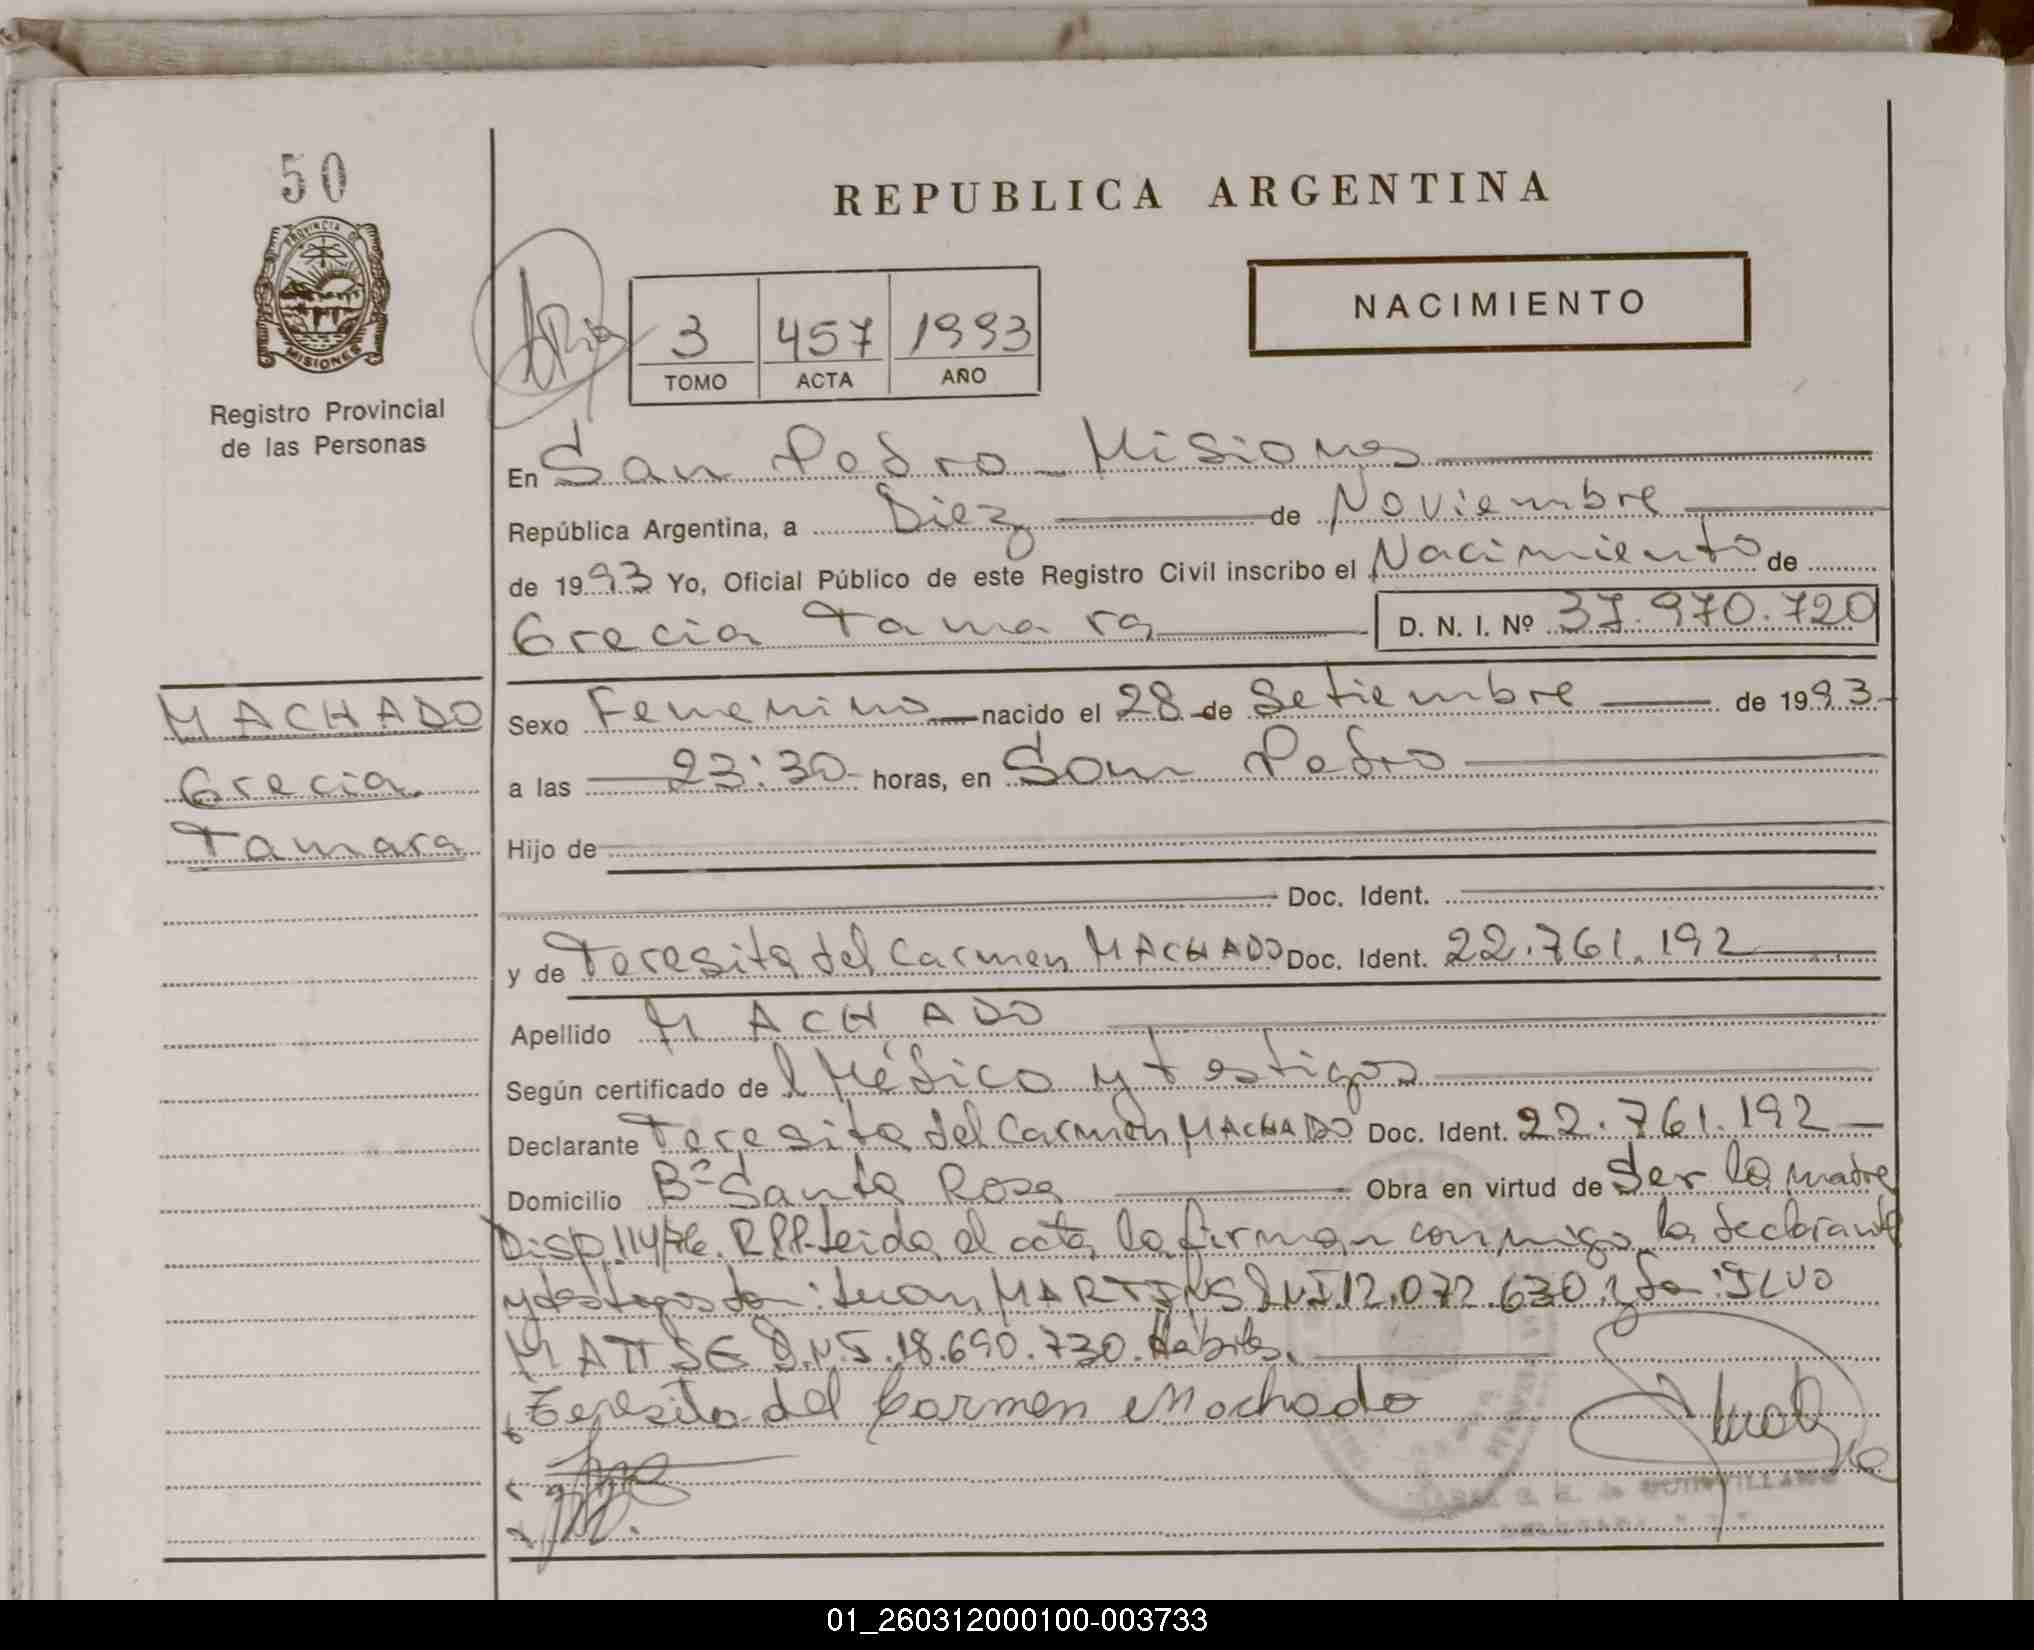 50
REPUBLICA ARGENTINA
PROVINCIA DE
MISIONES
Registro Provincial
de las Personas
3 457 1993
TOMO ACTA AÑO
NACIMIENTO
En San Pedro Misiones
República Argentina, a Diez de Noviembre
de 1993 Yo, Oficial Público de este Registro Civil inscribo el Nacimiento de
Grecia Tamara D. N. I. Nº 37.970.720
MACHADO
Grecia
Tamara
Sexo Femenino nacido el 28 de Setiembre de 1993
a las 23:30 horas, en San Pedro
Hijo de
Doc. Ident.
y de Teresita del Carmen MACHADO Doc. Ident. 22.761.192
Apellido MACHADO
Según certificado de l Médico y testigos
Declarante Teresita del Carmen MACHADO Doc. Ident. 22.761.192
Domicilio Bº Santa Rosa Obra en virtud de Ser la madre
Disp. 114/76. R.P.P. Leida el acta la firman conmigo la declarante
y testigos Don: Juan MARTINS D.N.I. 12.072.630 y Don: ILVO
MATTJE D.N.I. 18.690.730. Habiles.
Teresita del Carmen Machado
01_260312000100-003733